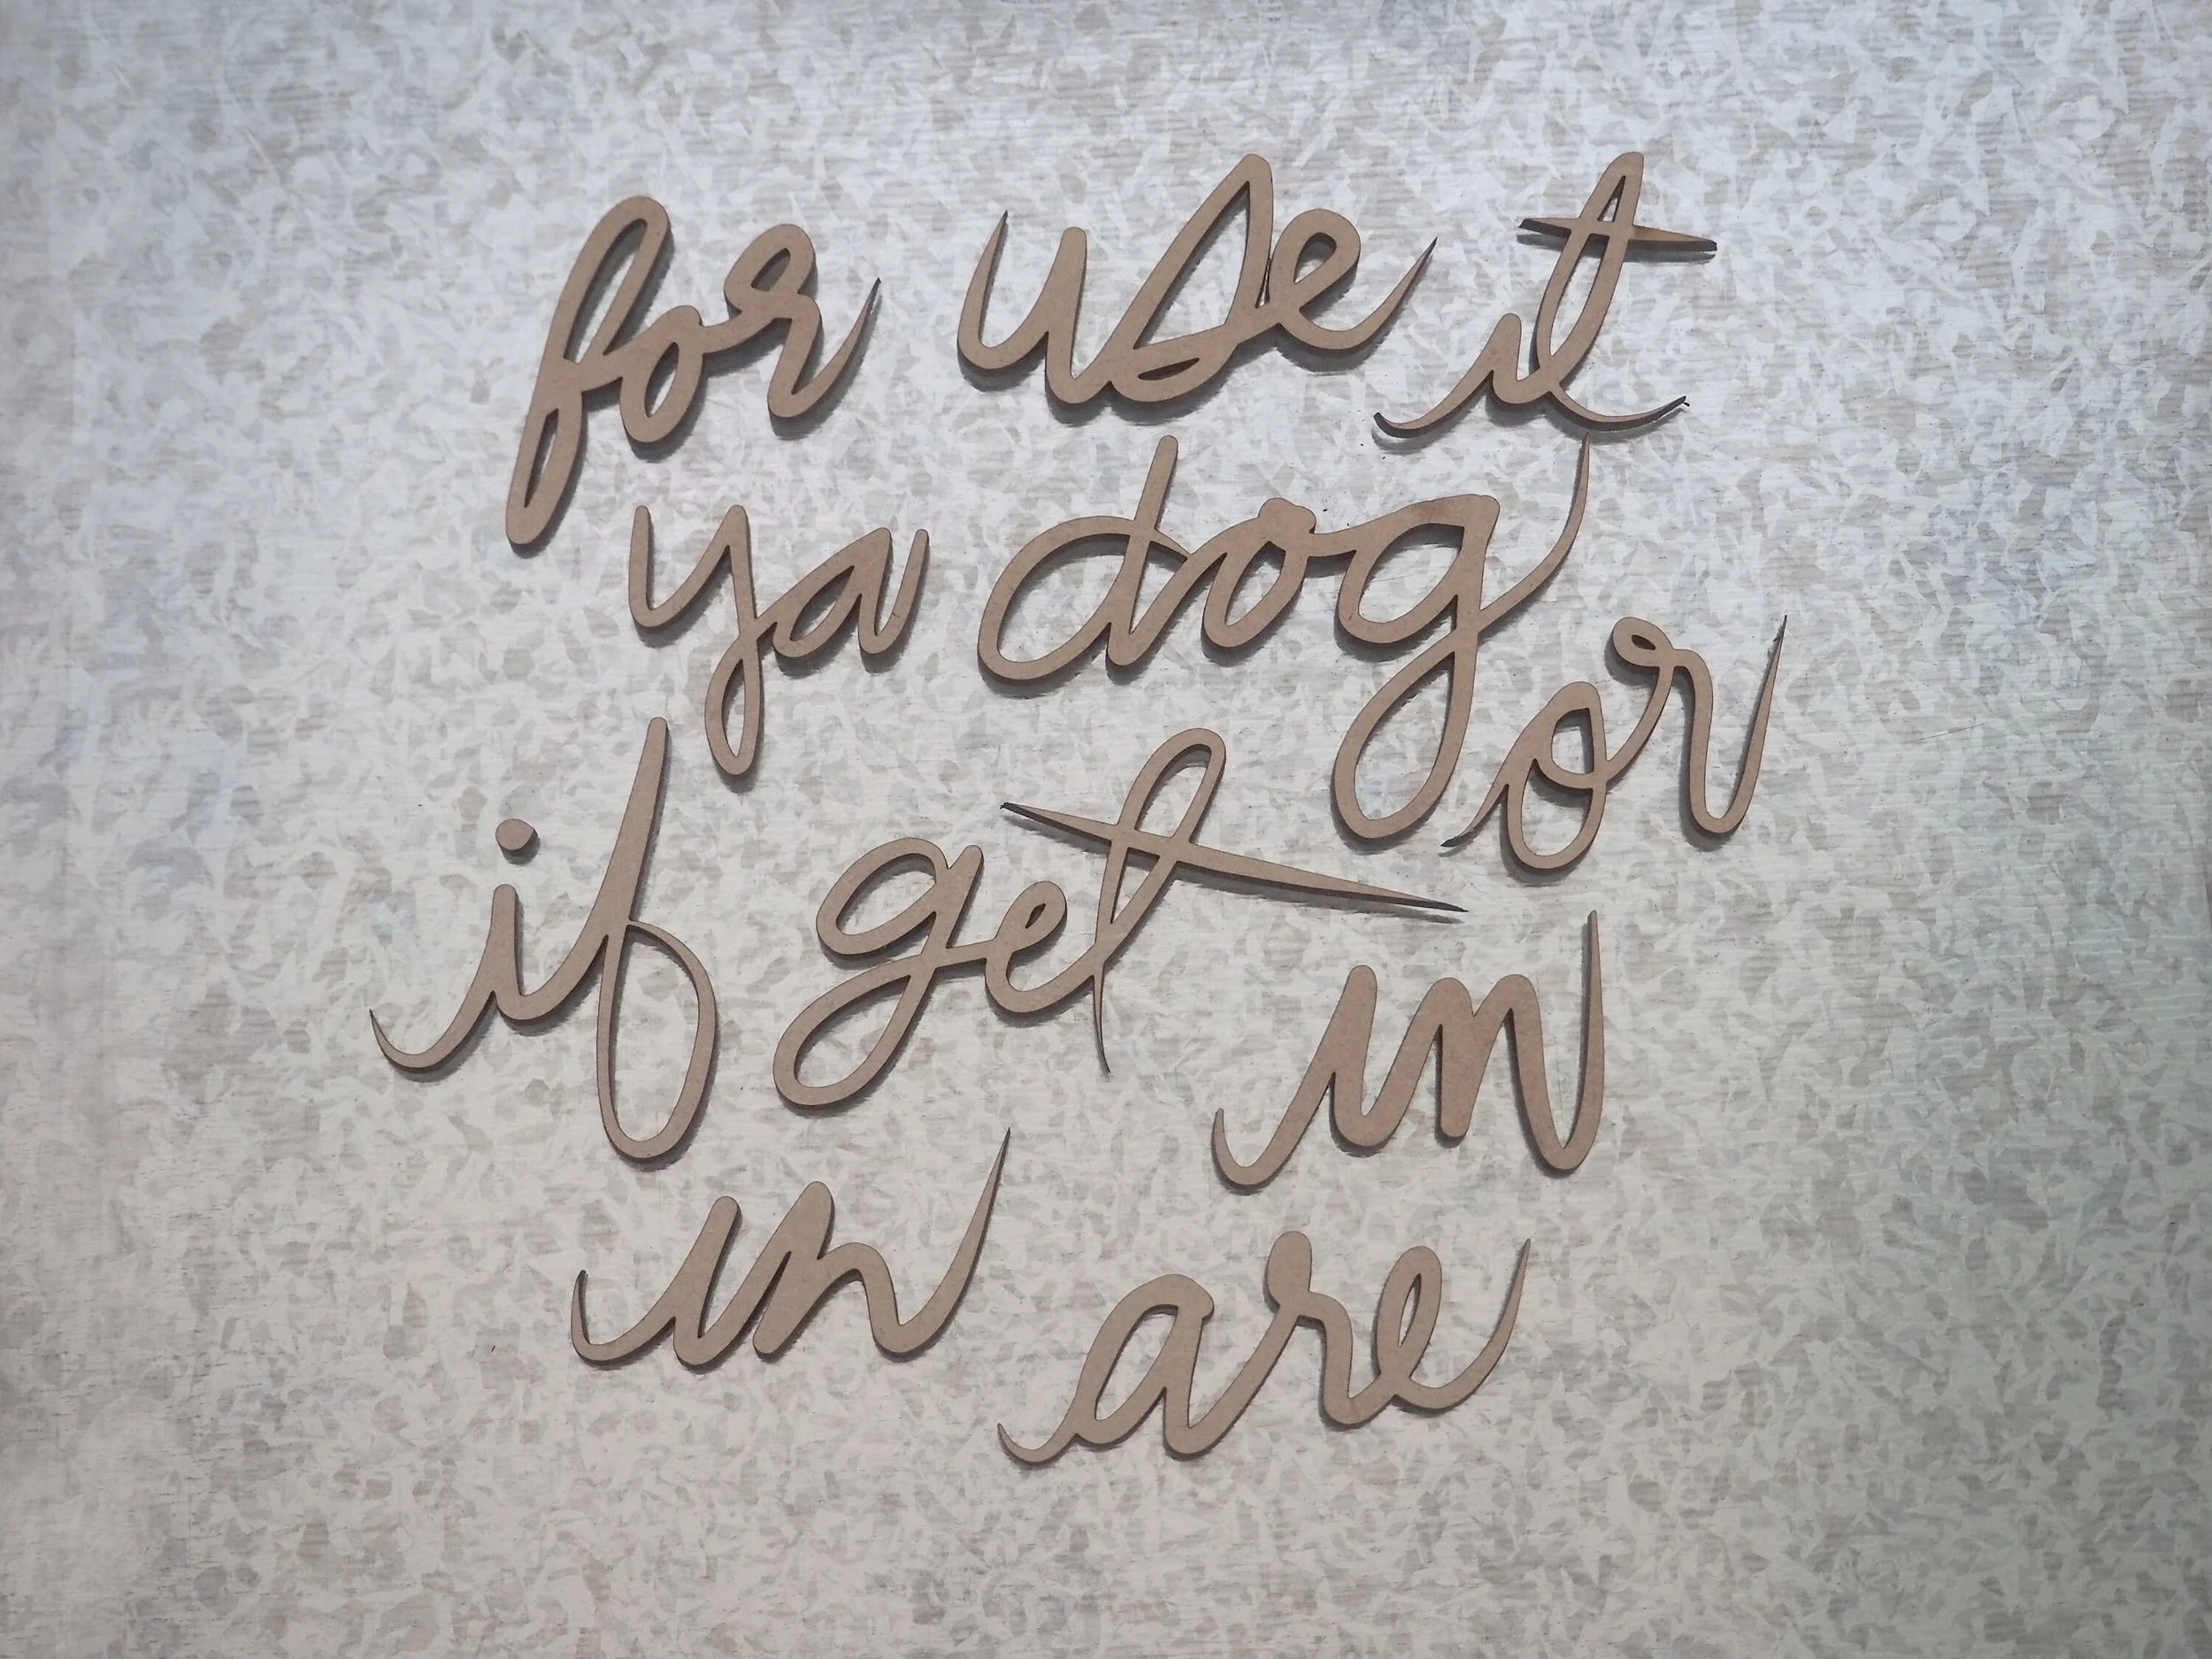 for use it
ya dog or
if get in
in are